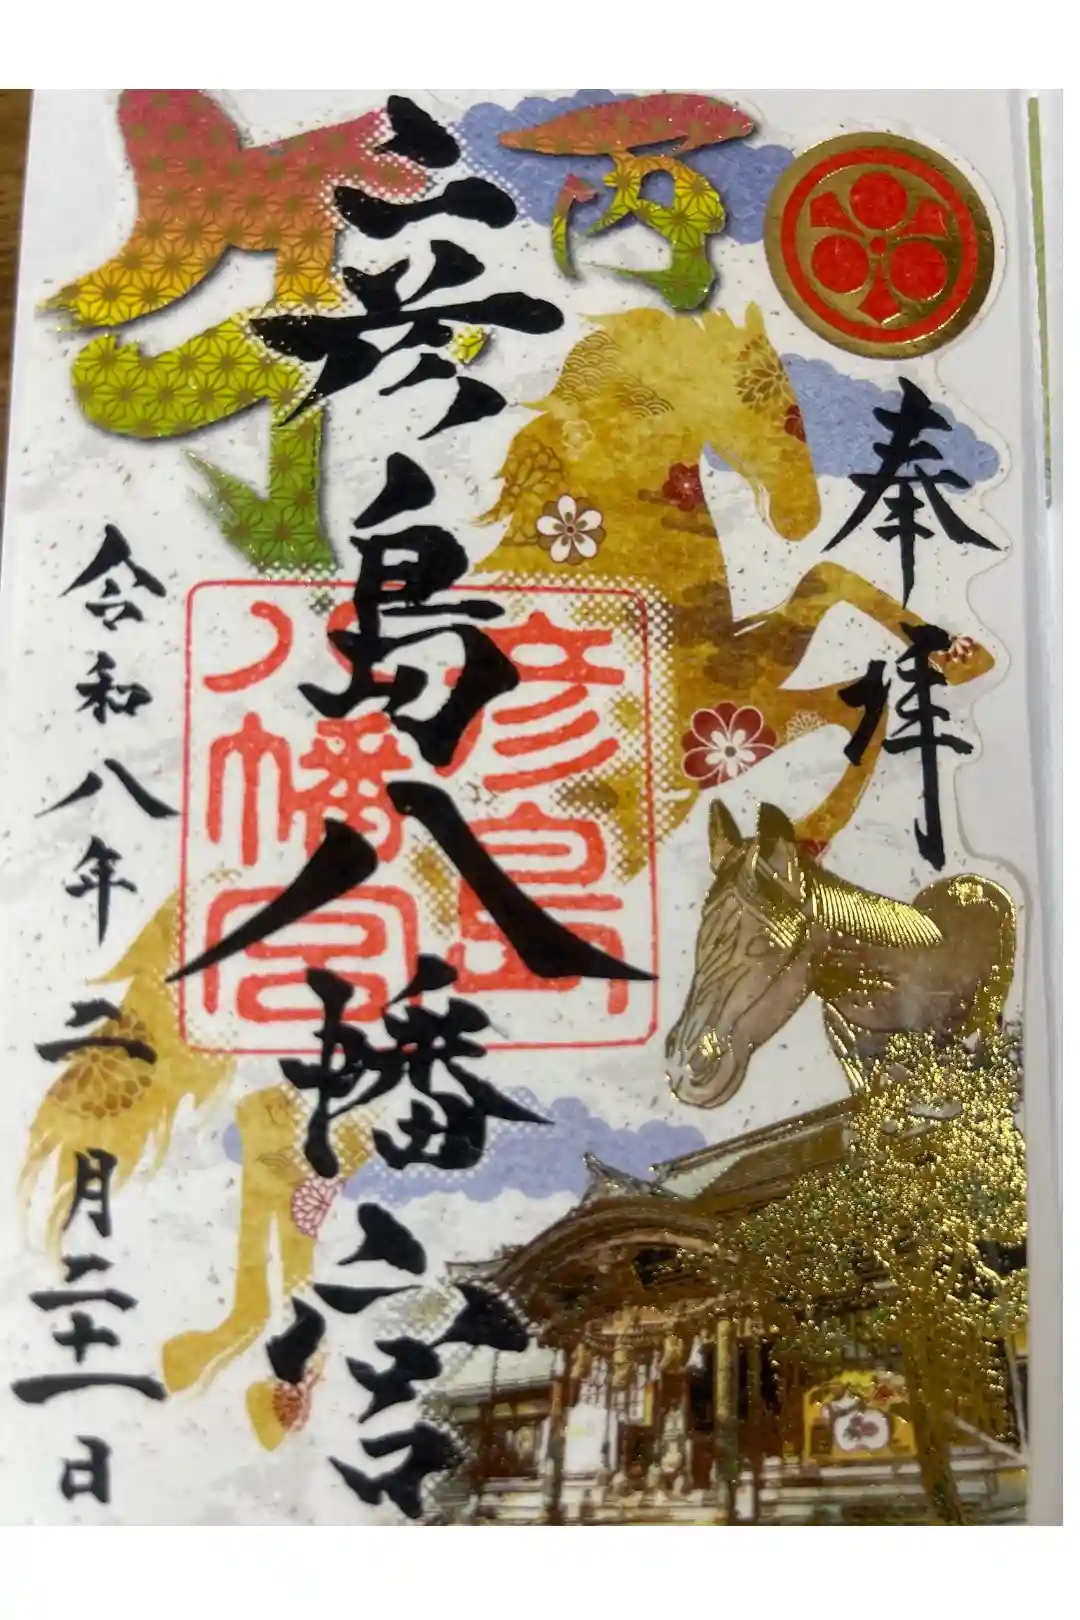 奉拝
丙
午
彦島八幡宮
彦島
八幡宮
令和八年二月二十一日